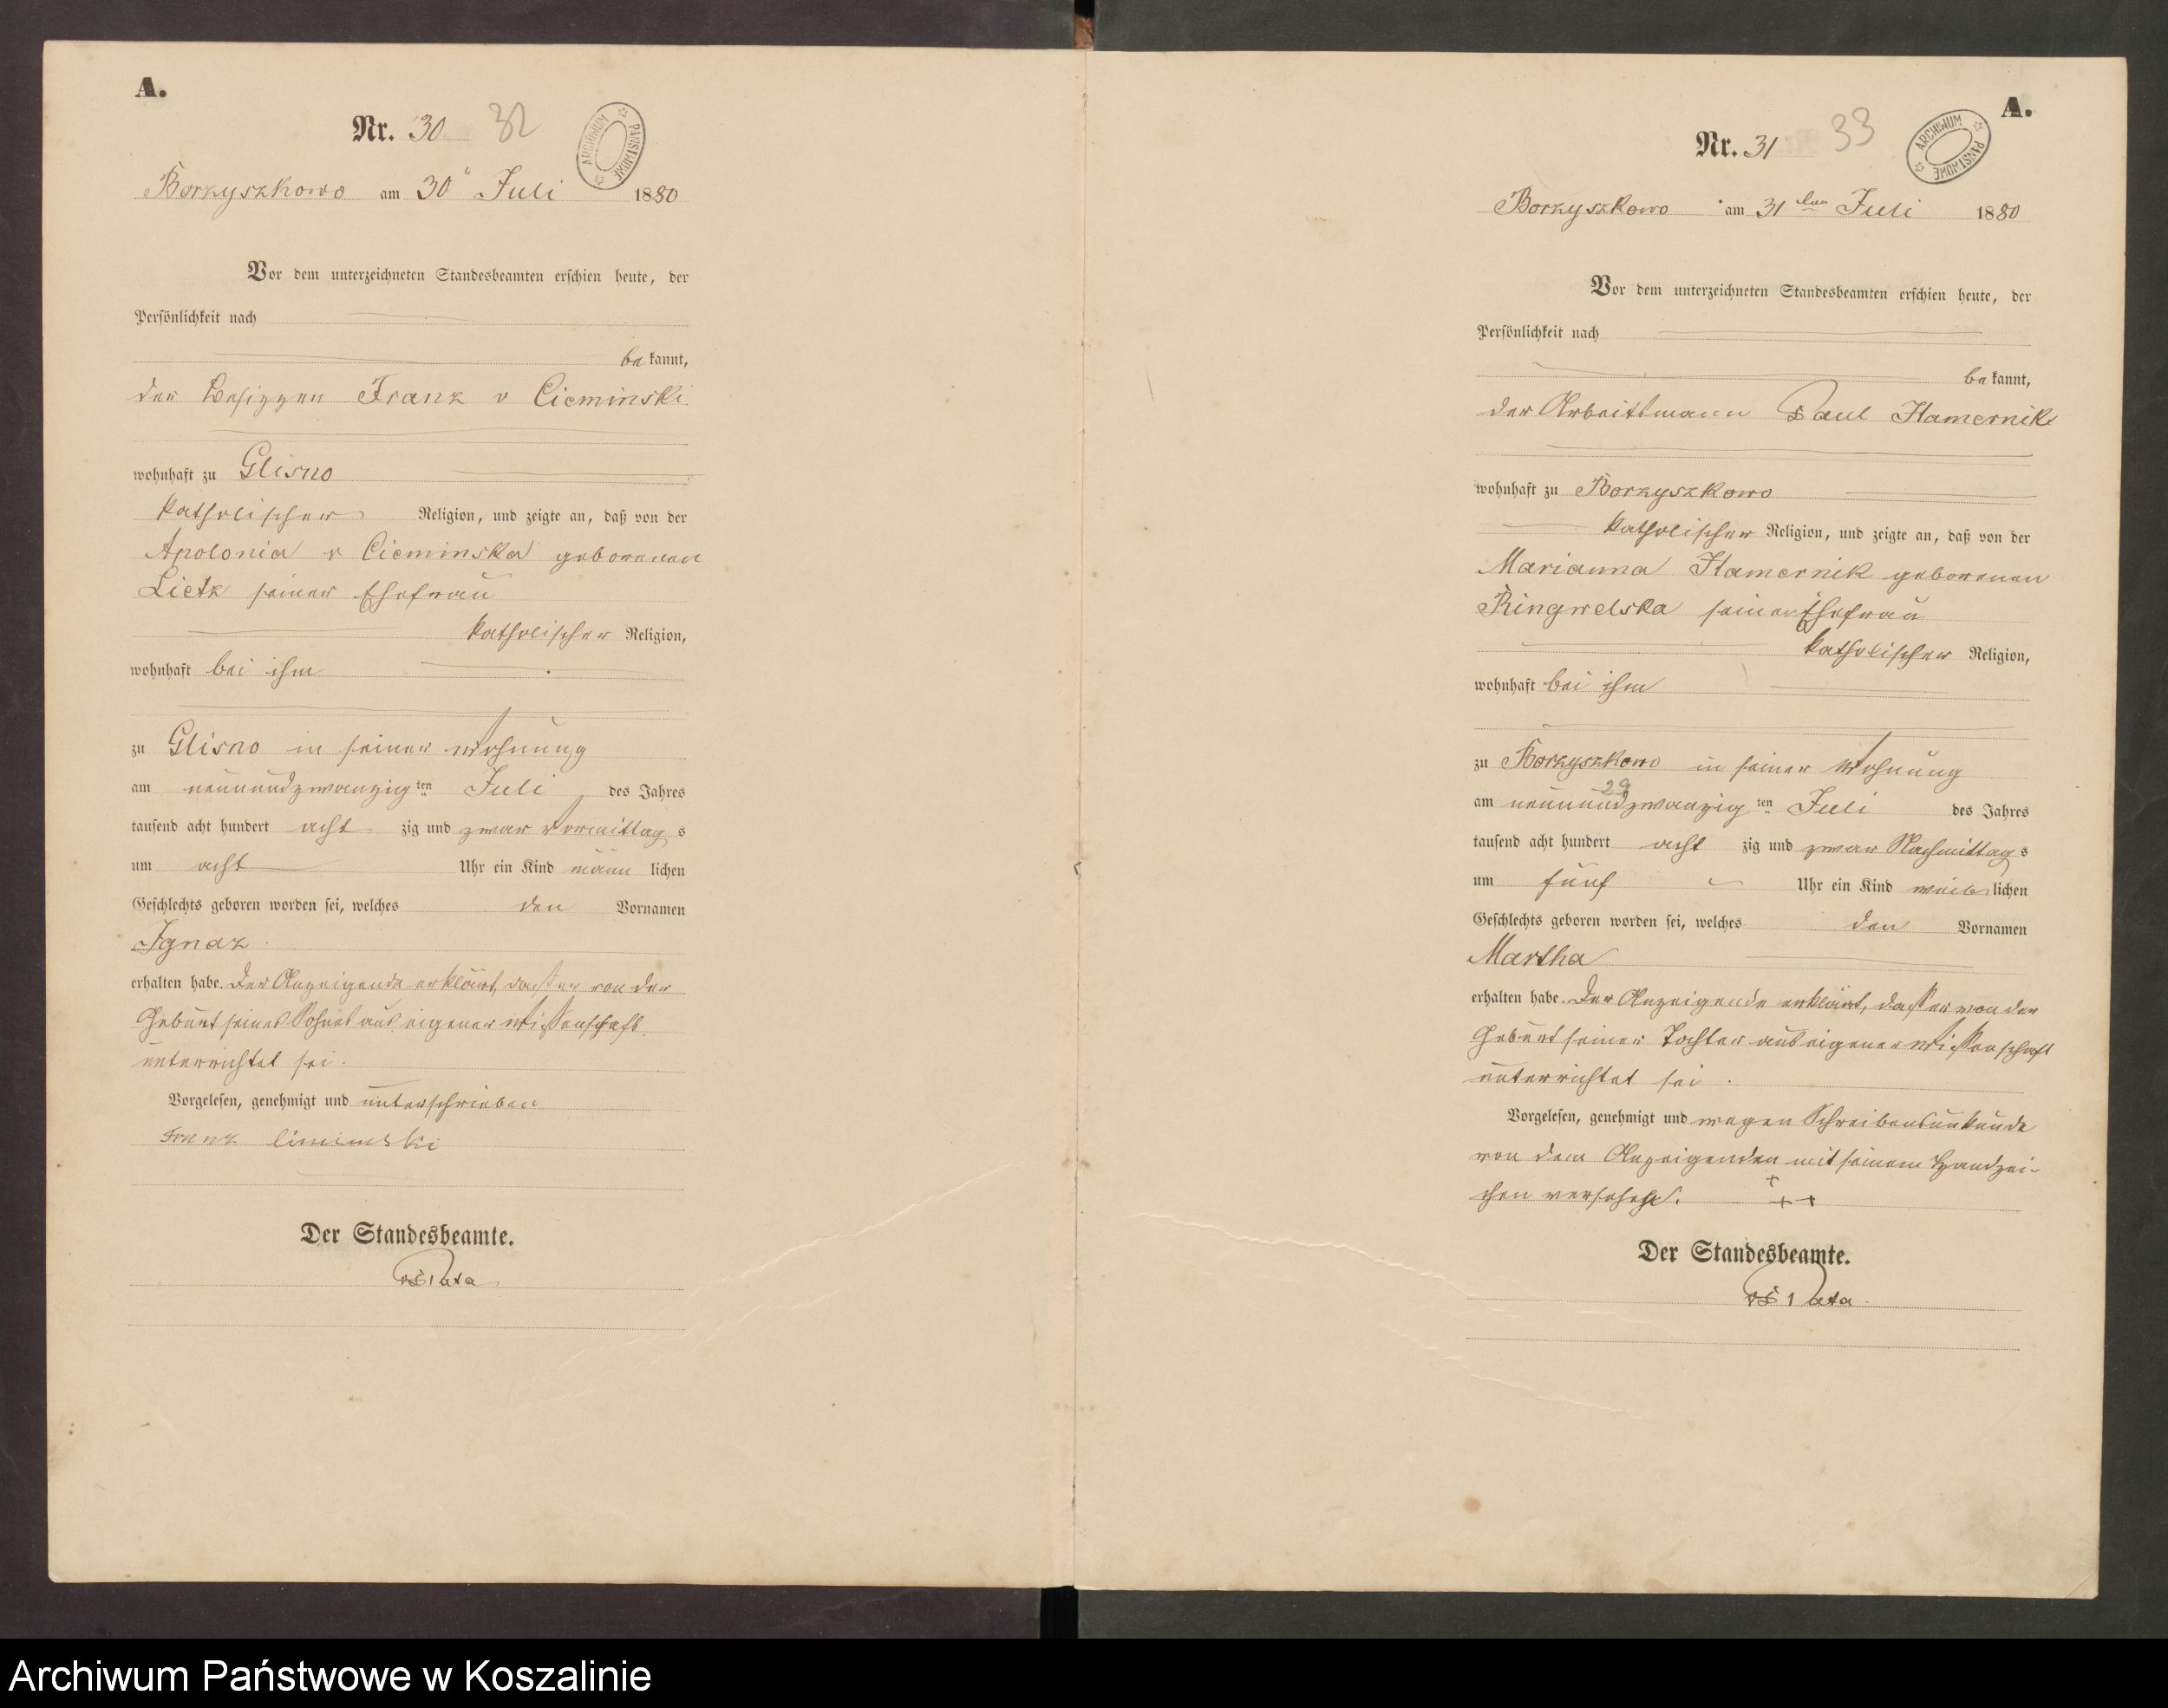 A.
Nr. 30 32
ARCHIWUM PAŃSTWOWE
Borzyszkowo am 30 Juli 1880
Vor dem unterzeichneten Standesbeamten erschien heute, der
Persönlichkeit nach
bekannt,
der Besitzer Franz v Cieminski
wohnhaft zu Glisno
katholischer Religion, und zeigte an, daß von der
Apolonia v Cieminska geborenen
Lietz seiner Ehefrau
katholischer Religion,
wohnhaft bei ihm
zu Glisno in seiner Wohnung
am neunundzwanzig ten Juli des Jahres
tausend acht hundert acht zig und zwar Vormittag s
um acht Uhr ein Kind männ lichen
Geschlechts geboren worden sei, welches den Vornamen
Ignaz
erhalten habe. Der Anzeigende erklärt, daß er von der
Geburt seines Sohnes aus eigener Wissenschaft
unterrichtet sei.
Vorgelesen, genehmigt und unterschrieben
Franz Cieminski
Der Standesbeamte.
A.
Nr. 31 33
ARCHIWUM PAŃSTWOWE
Borzyszkowo am 31 ten Juli 1880
Vor dem unterzeichneten Standesbeamten erschien heute, der
Persönlichkeit nach
bekannt,
der Arbeitsmann Paul Hamernik
wohnhaft zu Borzyszkowo
katholischer Religion, und zeigte an, daß von der
Marianna Hamernik geborenen
Ringwelska seiner Ehefrau
katholischer Religion,
wohnhaft bei ihm
zu Borzyszkowo in seiner Wohnung
29
am neunundzwanzig ten Juli des Jahres
tausend acht hundert acht zig und zwar Nachmittag s
um fünf Uhr ein Kind weib lichen
Geschlechts geboren worden sei, welches den Vornamen
Martha
erhalten habe. Der Anzeigende erklärt, daß er von der
Geburt seiner Tochter aus eigener Wissenschaft
unterrichtet sei.
Vorgelesen, genehmigt und wegen Schreibensunkunde
von dem Anzeigenden mit seinem Handzei-
chen versehen. +++
Der Standesbeamte.
Archiwum Państwowe w Koszalinie